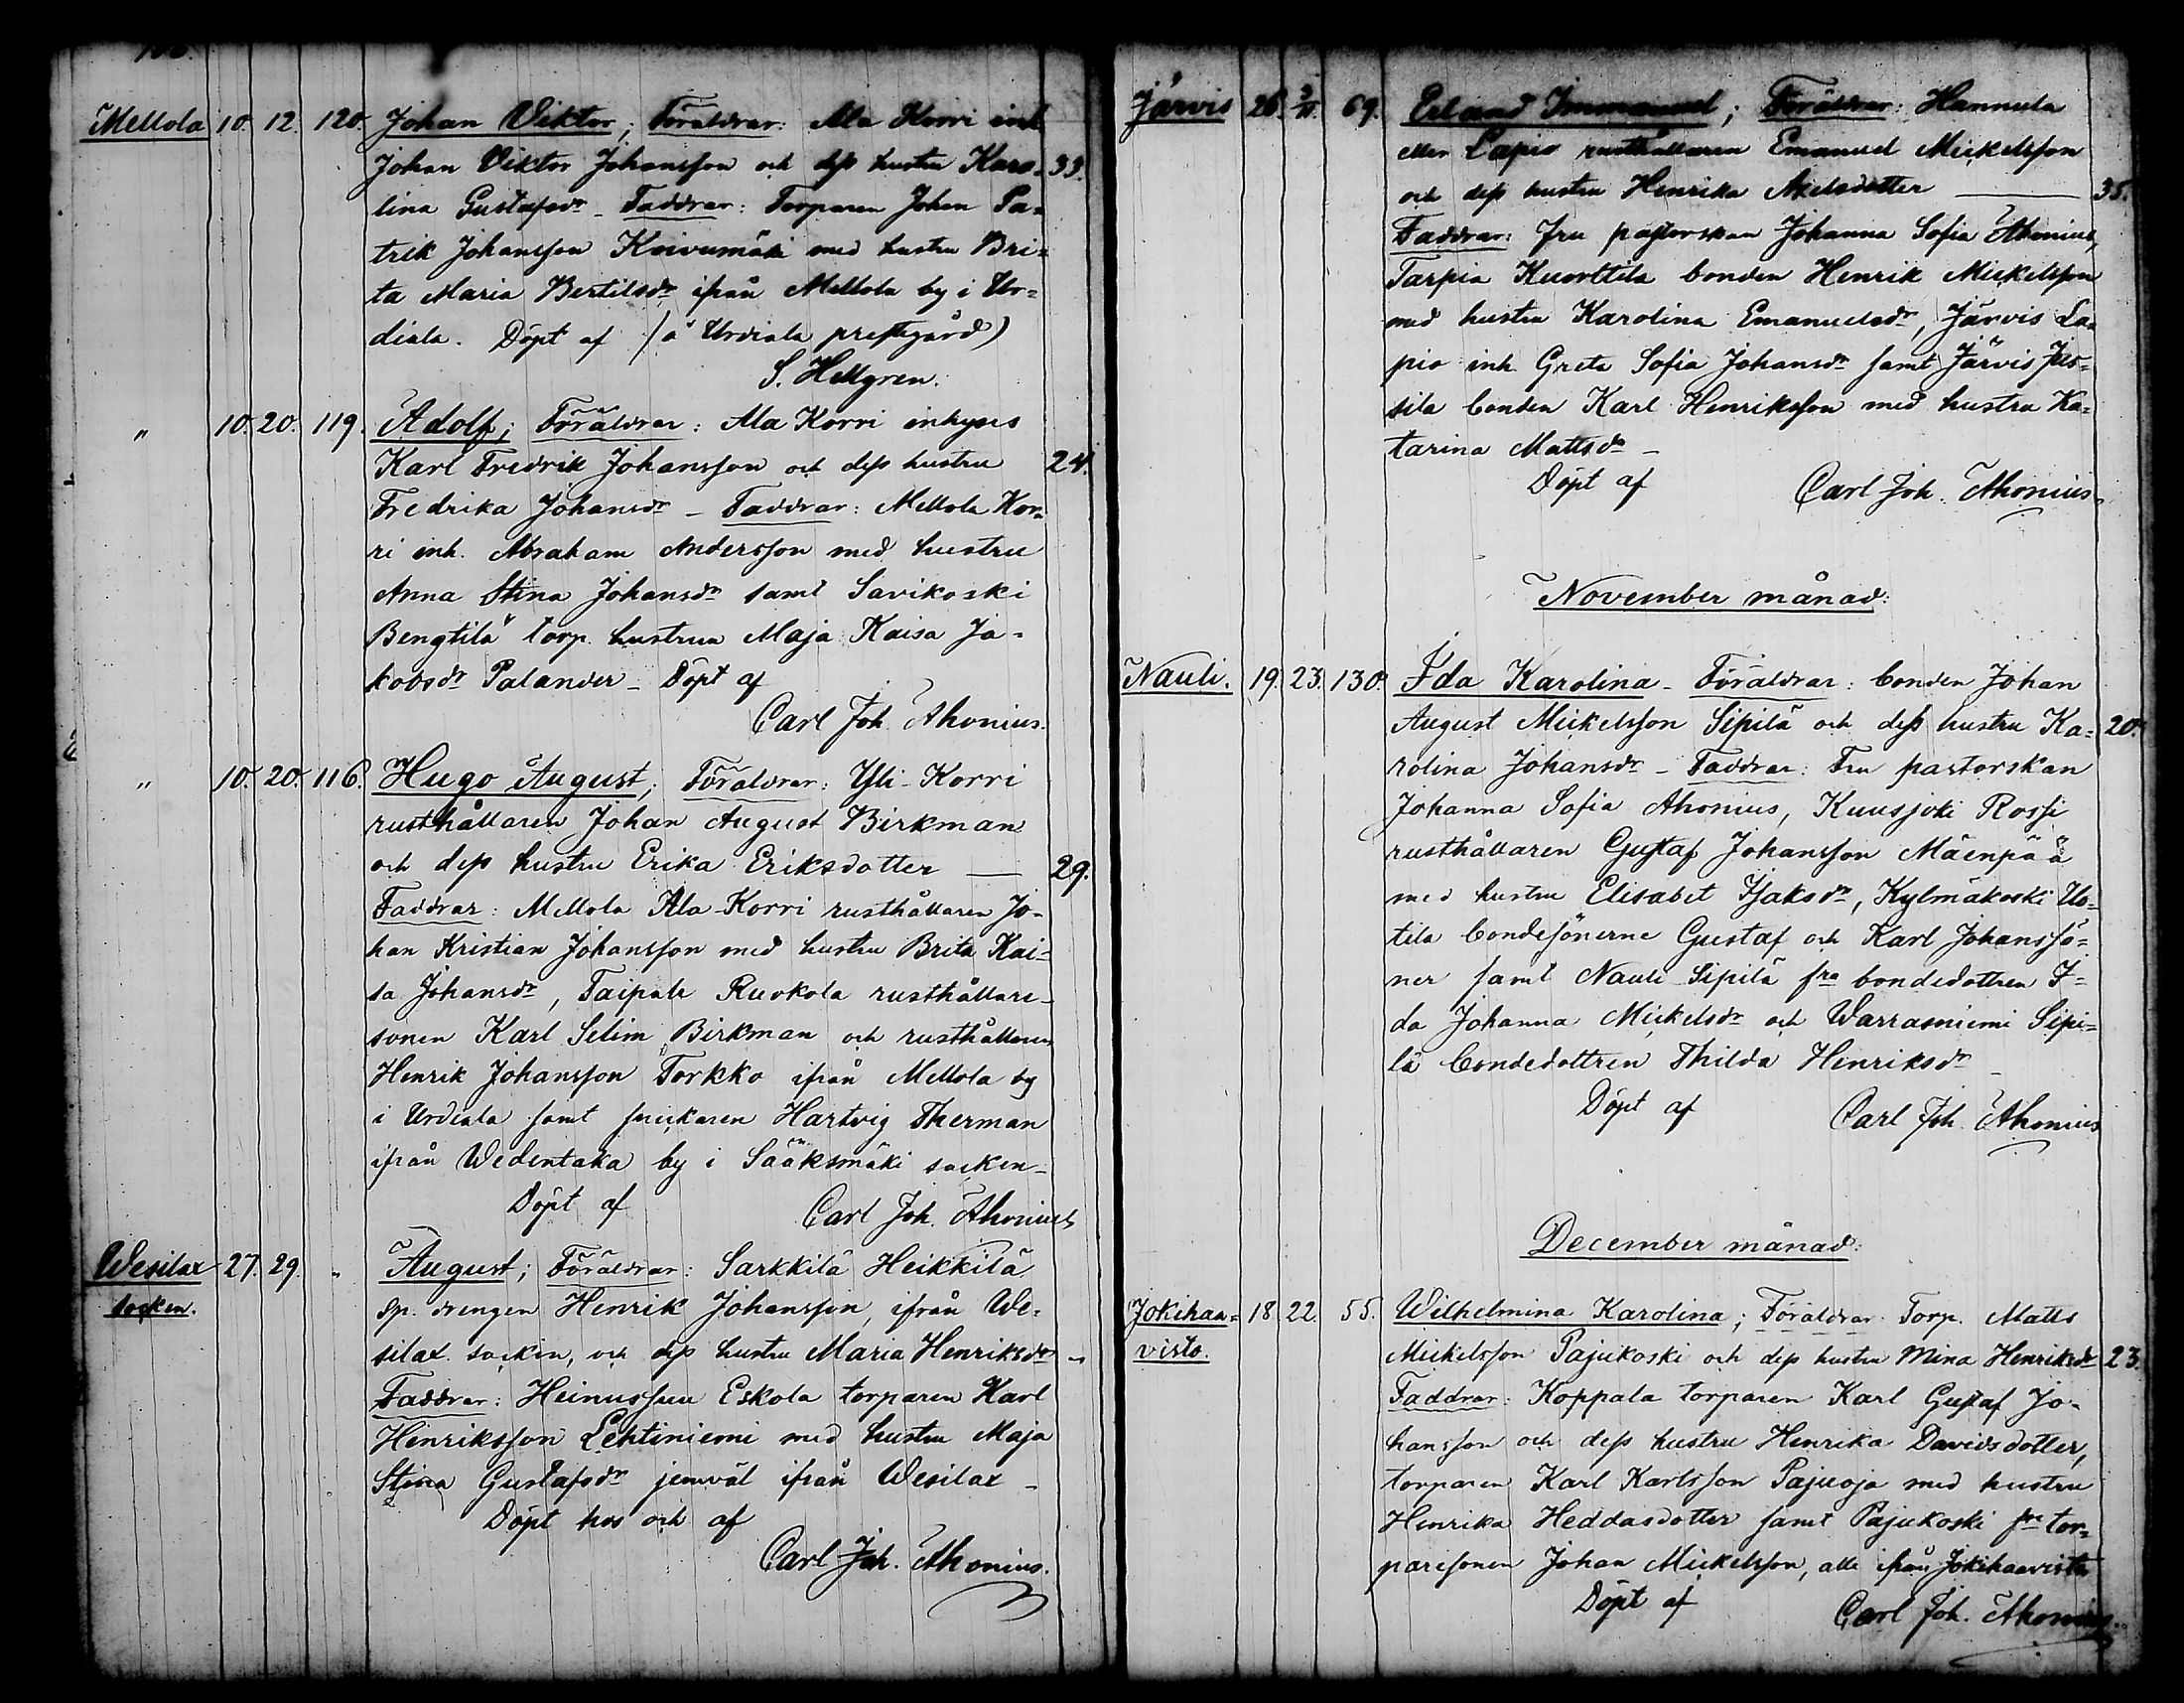 Mellola 10. 12. 120. Johan Viktor; Föräldrar: Ala Korri inh.
Johan Viktor Johansson och dess hustru Karo- 33.
lina Gustafsdr – Faddrar: Torparen Johan Pa-
trik Johansson Koivumäki med hustru Bri-
ta Maria Bertilsdr ifrån Mellola by i Ur-
diala. Döpt af (å Urdiala prestgård)
S. Hellgren.
" 10. 20. 119. Adolf; Föräldrar: Ala Korri inhyses
Karl Fredrik Johansson och dess hustru 24.
Fredrika Johansdr – Faddrar: Mellola Kor-
ri inh. Abraham Andersson med hustru
Anna Stina Johansdr samt Savikoski
Bengtilä torp. hustrun Maja Kaisa Ja-
kobsdr Palander – Döpt af
Carl Joh. Ahonius.
" 10. 20. 116. Hugo August; Föräldrar: Yli-Korri
rusthållaren Johan August Birkman
och dess hustru Erika Eriksdotter — 29.
Faddrar: Mellola Ala-Korri rusthållaren Jo-
han Kristian Johansson med hustru Brita Kai-
sa Johansdr, Taipale Ruokola rusthållare-
sonen Karl Selim Birkman och rusthållaren
Henrik Johansson Torkko ifrån Mellola by
i Urdiala samt snickaren Hartvig Therman
ifrån Wedentaka by i Sääksmäki socken –
Döpt af Carl Joh. Ahonius
Wesilax 27. 29. " August; Föräldrar: Sarkkilä Heikkilä
socken. sp. drengen Henrik Johansson, ifrån We-
silax socken, och dess hustru Maria Henriksdr "
Faddrar: Heinusuu Eskola torparen Karl
Henriksson Lehtiniemi med hustru Maja
Stina Gustafsdr jemväl ifrån Wesilax –
Döpt hos och af
Carl Joh. Ahonius.
Järvis 26. 2/11. 69. Erland Immanuel; Föräldrar: Hannula
eller Lapio rusthållaren Emanuel Mickelsson
och dess hustru Henrika Axelsdotter — 35.
Faddrar: Fru pastorskan Johanna Sofia Ahonius,
Tarpia Kuorttila bonden Henrik Mickelsson
med hustru Karolina Emanuelsdr, Järvis La-
pio inh. Greta Sofia Johansdr samt Järvis Jus-
sila bonden Karl Henriksson med hustru Ka-
tarina Mattsdr –
Döpt af Carl Joh. Ahonius.
November månad:
Nauli. 19. 23. 130. Ida Karolina – Föräldrar: bonden Johan
August Mickelsson Sipilä och dess hustru Ka- 20.
rolina Johansdr – Faddrar: Fru pastorskan
Johanna Sofia Ahonius, Kuusjoki Rossi
rusthållaren Gustaf Johansson Mäenpää
med hustru Elisabet Isaksdr, Kylmäkoski Uo-
tila bondesönerne Gustaf och Karl Johansssö-
ner samt Nauli Sipilä fra bondedottren I-
da Johanna Mickelsdr och Warrasniemi Sipi-
lä bondedottren Thilda Henriksdr –
Döpt af Carl Joh. Ahonius
December månad:
Jokihaa- 18. 22. 55. Wilhelmina Karolina; Föräldrar: Torp. Matts
visto. Mickelsson Pajukoski och dess hustru Mina Henriksdr 23.
Faddrar: Koppala torparen Karl Gustaf Jo-
hansson och dess hustru Henrika Davidsdotter,
torparen Karl Karlsson Pajuoja med hustru
Henrika Heddasdotter samt Pajukoski fra tor-
paresonen Johan Mickelsson, alle ifrån Jokihaavisto
Döpt af Carl Joh. Ahonius.